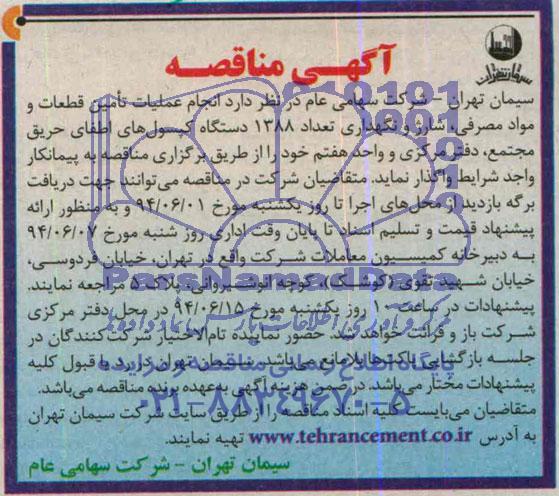 آگهی مناقصه
سیمان تهران
سیمان تهران – شرکت سهامی عام در نظر دارد انجام عملیات تأمین قطعات و
مواد مصرفی، شارژ و نگهداری تعداد ۱۳۸۸ دستگاه کپسول‌های اطفای حریق
مجتمع، دفتر مرکزی و واحد هفتم خود را از طریق برگزاری مناقصه به پیمانکار
واجد شرایط واگذار نماید. متقاضیان شرکت در مناقصه می‌توانند جهت دریافت
برگه بازدید از محل‌های اجرا تا روز یکشنبه مورخ ۹۴/۰۶/۰۱ و به منظور ارائه
پیشنهاد قیمت و تسلیم اسناد تا پایان وقت اداری روز شنبه مورخ ۹۴/۰۶/۰۷
به دبیرخانه کمیسیون معاملات شرکت واقع در تهران، خیابان فردوسی،
خیابان شهید تقوی (کوشک)، کوچه انوشیروانی، پلاک ۵ مراجعه نمایند.
پیشنهادات در ساعت ۱۰ روز یکشنبه مورخ ۹۴/۰۶/۱۵ در محل دفتر مرکزی
شرکت باز و قرائت خواهد شد. حضور نماینده تام‌الاختیار شرکت‌کنندگان در
جلسه بازگشایی پاکت‌ها بلامانع می‌باشد. سیمان تهران در رد یا قبول کلیه
پیشنهادات مختار می‌باشد. در ضمن هزینه آگهی به‌عهده برنده مناقصه می‌باشد.
متقاضیان می‌بایست کلیه اسناد مناقصه را از طریق سایت شرکت سیمان تهران
به آدرس www.tehrancement.co.ir تهیه نمایند.
سیمان تهران – شرکت سهامی عام
ParsNamadData
پایگاه اطلاع رسانی مناقصه و مزایده
۰۲۱-۸۸۳۴۹۶۷۰-۵